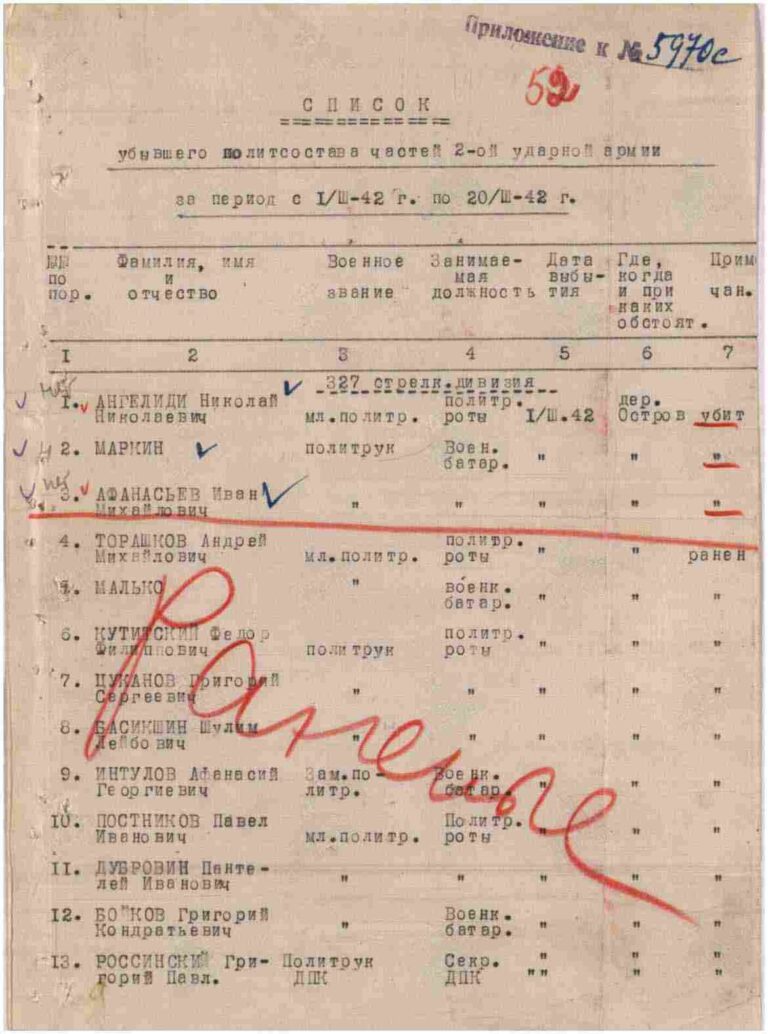 Приложение к № 5970с
52
СПИСОК
убывшего политсостава частей 2-ой ударной армии
за период с I/Ш-42 г. по 20/Ш-42 г.
№№ по пор. Фамилия, имя и отчество Военное звание Занимаемая должность Дата выбытия Где, когда и при каких обстоят. Прим чан.
I 2 3 4 5 6 7
327 стрелк.дивизия
нет
1. АНГЕЛИДИ Николай политр. дер.
Николаевич мл.политр. роты I/Ш.42 Остров убит
2. МАРКИН политрук Воен.
батар. " " "
нет
3. АФАНАСЬЕВ Иван
Михайлович " " " " "
4. ТОРАШКОВ Андрей политр.
Михайлович мл.политр. роты " " ранен
5. МАЛЬКО " военк.
батар. " " "
6. КУТИТСКИЙ Федор политр.
Филиппович политрук роты " " "
7. ЦУКАНОВ Григорий
Сергеевич " " " " "
8. БАСИКШИН Шулим
Лейбович " " " " "
9. ИНТУЛОВ Афанасий Зам.по- Военк.
Георгиевич литр. батар. " " "
10. ПОСТНИКОВ Павел Политр.
Иванович мл.политр. роты " " "
II. ДУБРОВИН Панте-
лей Иванович " " " " "
12. БОЙКОВ Григорий Военк.
Кондратьевич " батар. " " "
13. РОССИНСКИЙ Гри- Политрук Секр.
горий Павл. ДПК ДПК "" " "
Раненые